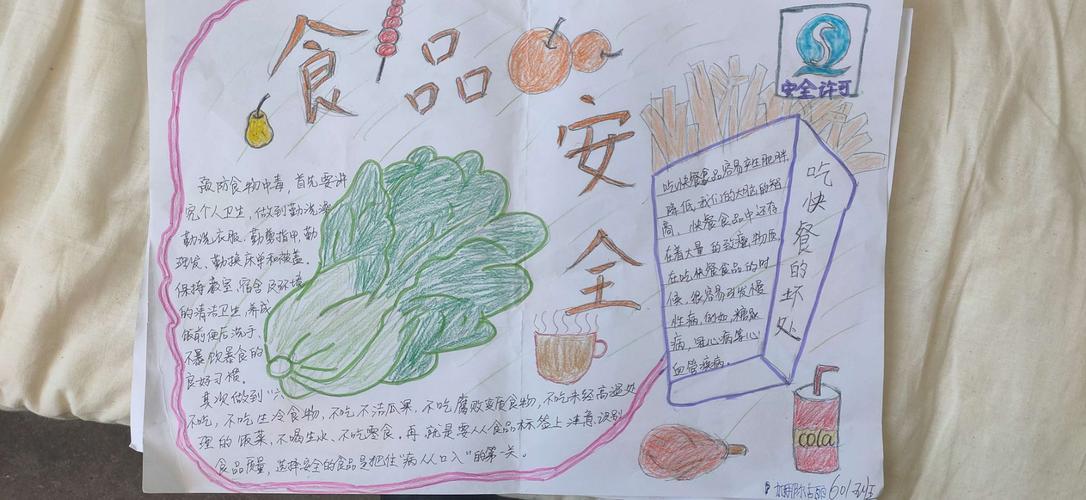 食品
安
全
安全许可
预防食物中毒，首先要讲
究个人卫生，做到勤洗澡
勤洗衣服，勤剪指甲，勤
理发、勤换床单和被盖。
保持教室、宿舍及环境
的清洁卫生 养成
饭前便后洗手、
不暴饮暴食的
良好习惯。
其次做到"六
不吃，不吃生冷食物，不吃不洁瓜果，不吃腐败变质食物，不吃未经高温处
理的饭菜，不喝生水、不吃零食。再就是要从食品标签上注意识别
食品质量，选择安全的食品是把住"病从口入"的第一关。
吃快餐食品容易产生肥胖
降低我们的大脑的智
商、快餐食品中还存
在着大量的致癌物质，
在吃快餐食品的时
候，很容易引发慢
性病，的如，糖尿
病，冠心病等心
血管疾病。
吃快餐的坏处
cola
601班